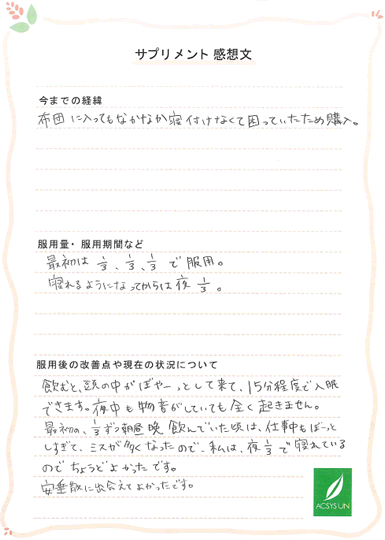 サプリメント 感想文
今までの経緯
布団に入ってもなかなか寝付けなくて困っていたため購入。
服用量・服用期間など
最初は 1/3、1/3、1/3 で服用。
寝れるようになってからは夜 1/3。
服用後の改善点や現在の状況について
飲むと、頭の中がぼやーっとして来て、15分程度で入眠
できます。夜中も物音がしていても全く起きません。
最初の、1/3ずつ朝昼晩 飲んでいた頃は、仕事もぼーっと
しすぎて、ミスが多くなったので、私は、夜1/3で寝れている
のでちょうどよかったです。
安垂散に出会えてよかったです。
ACSYS UN